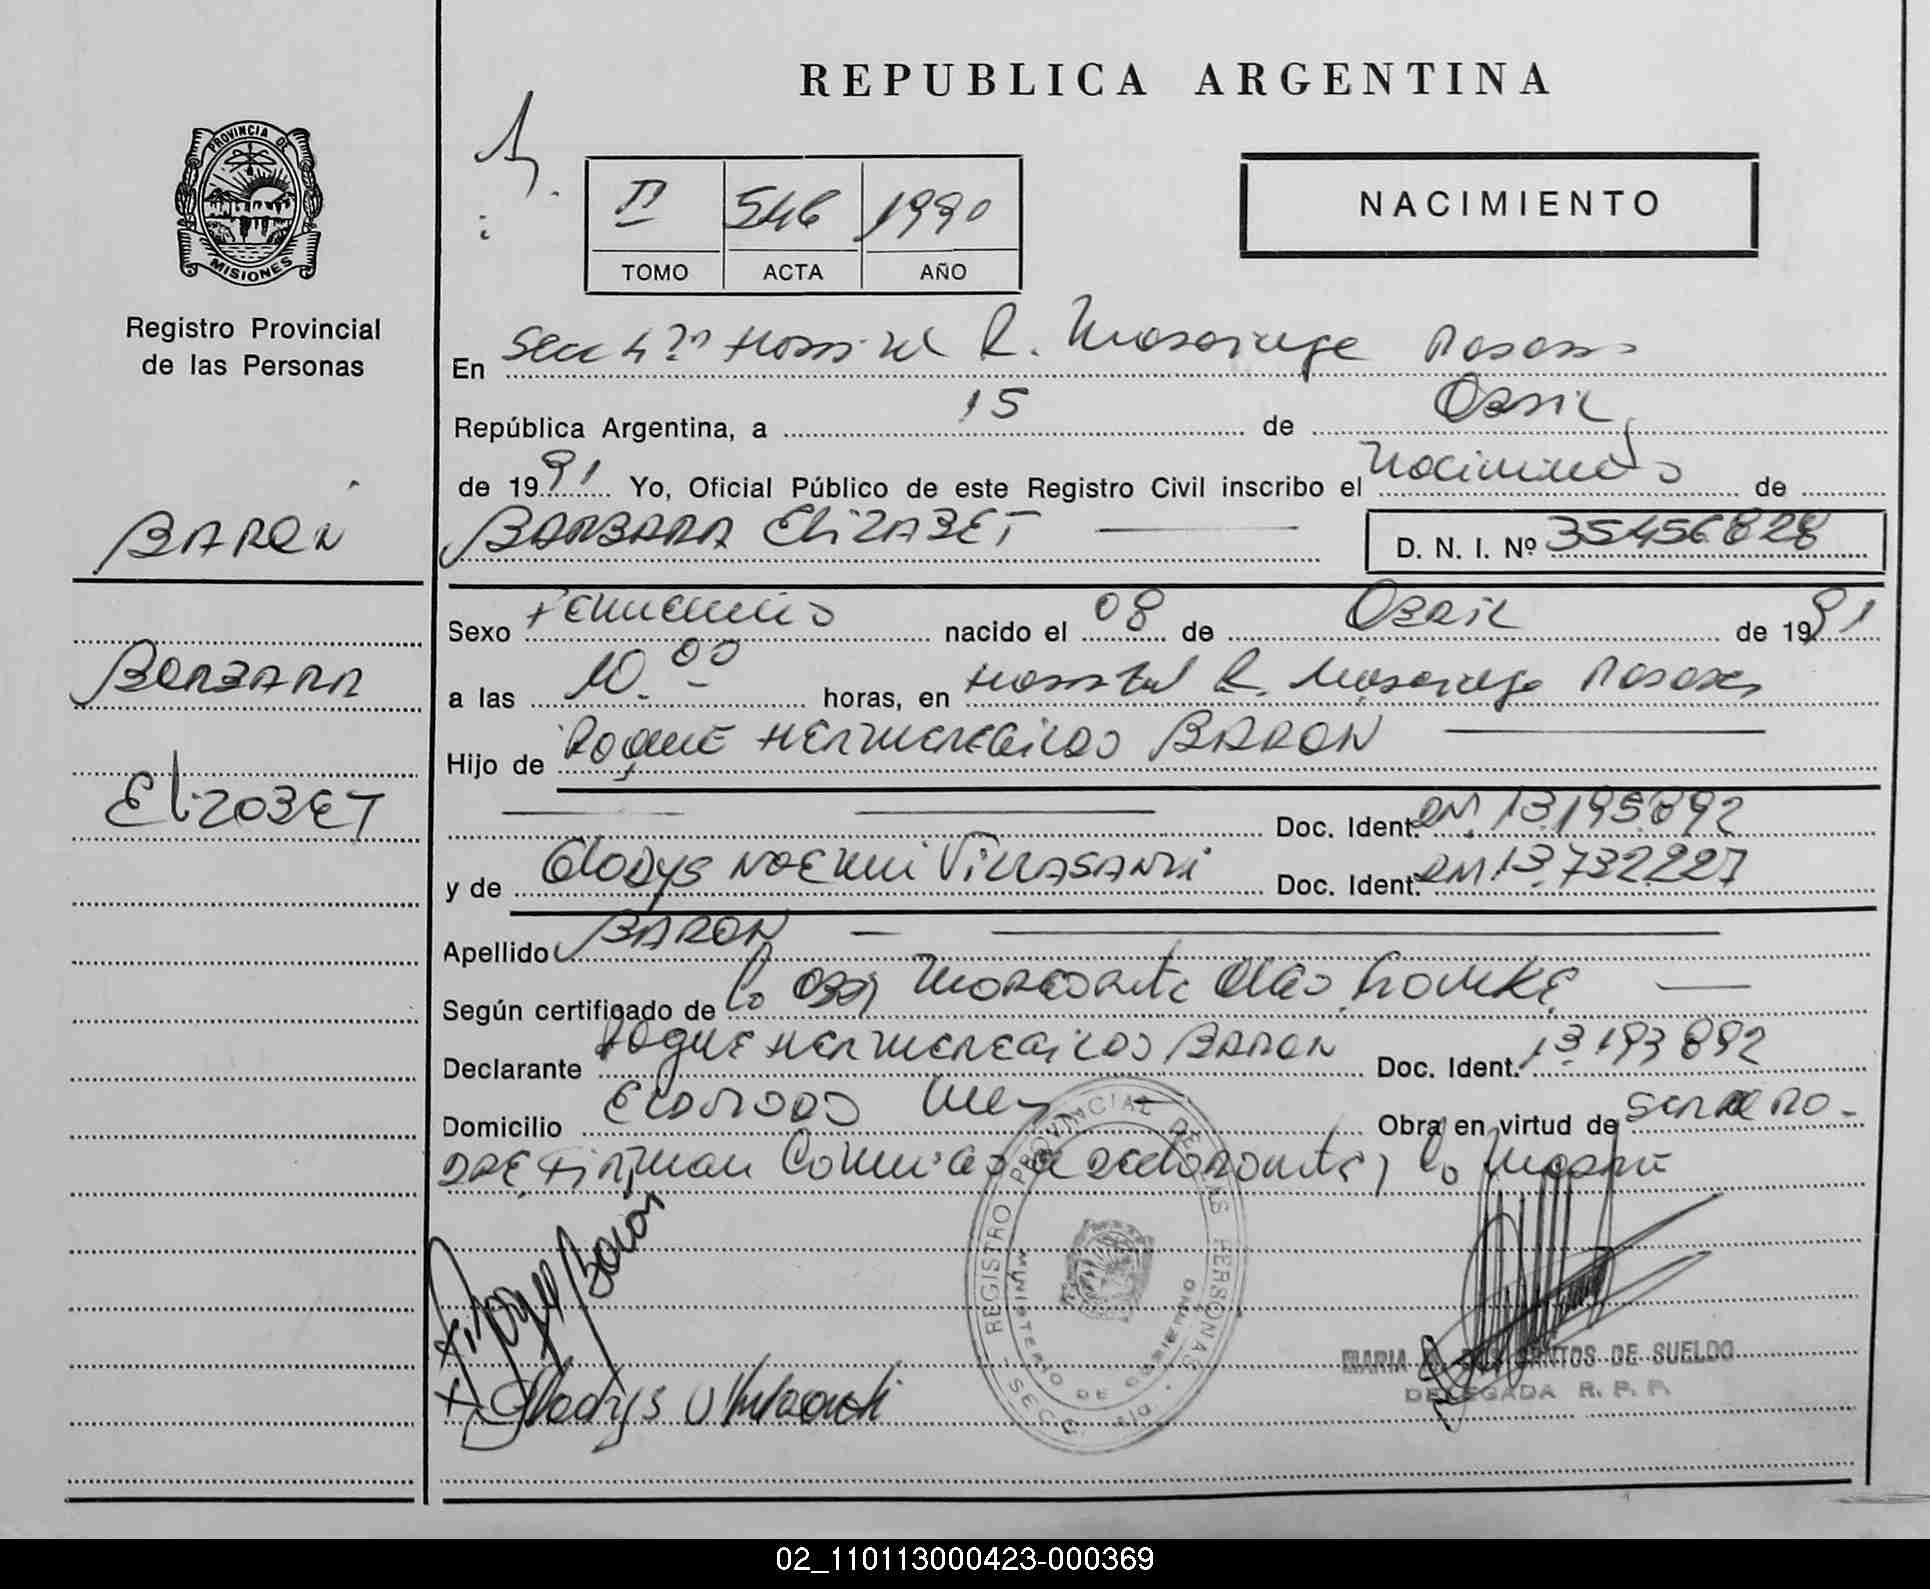 REPUBLICA ARGENTINA
PROVINCIA DE
MISIONES
Registro Provincial
de las Personas
II 546 1990
TOMO ACTA AÑO
NACIMIENTO
En Secc 4ª Hospital R. Madariaga Posadas
República Argentina, a 15 de Abril
de 1991 Yo, Oficial Público de este Registro Civil inscribo el Nacimiento de
BARBARA ELIZABET D. N. I. Nº 35456828
BARON
BARBARA
ELIZABET
Sexo Femenino nacido el 08 de Abril de 1991
a las 10.00 horas, en Hospital R. Madariaga Posadas
Hijo de Roque HERMENEGILDO BARON
Doc. Ident. DNI. 13.195.892
y de Gladys NOEMI VILLASANTI Doc. Ident. DNI 13.732.227
Apellido BARON
Según certificado de la Obst
Declarante Roque HERMENEGILDO BARON Doc. Ident. 13.193.892
Domicilio Eldorado Obra en virtud de
Firman Conmigo el declarante y la Madre
Roque Baron
Gladys Villasanti
REGISTRO PROVINCIAL DE LAS PERSONAS
MINISTERIO DE GOBIERNO
MARIA SANTOS DE SUELDO
DELEGADA R. P. P.
02_110113000423-000369